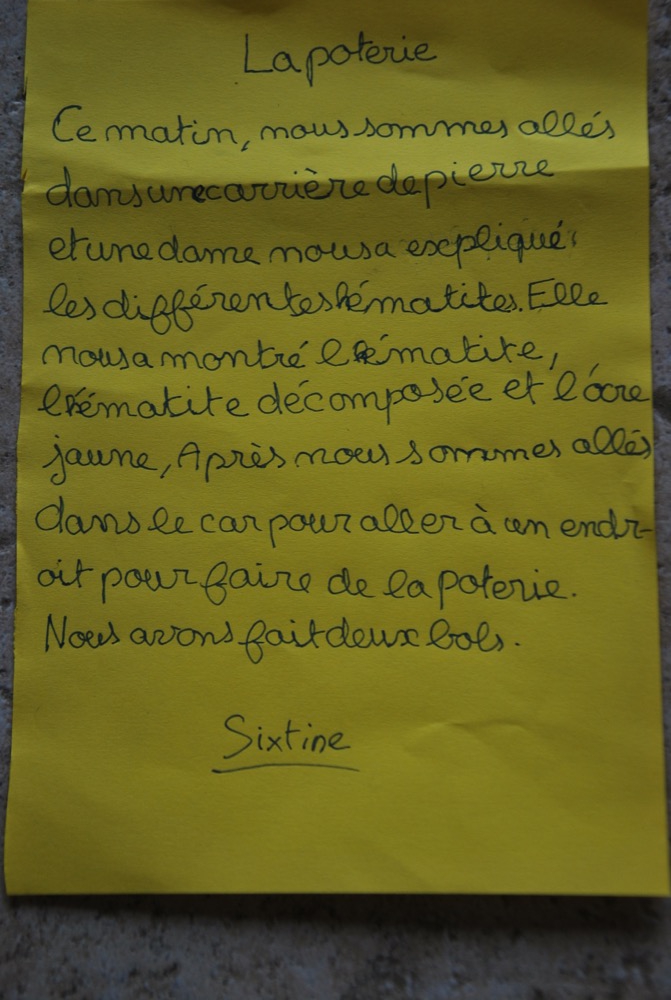 La poterie
Ce matin, nous sommes allés
dans une carrière de pierre
et une dame nous a expliqué
les différentes hématites. Elle
nous a montré l'hématite,
l'hématite décomposée et l'ocre
jaune, Après nous sommes allés
dans le car pour aller à un endr-
oit pour faire de la poterie.
Nous avons fait deux bols.
Sixtine